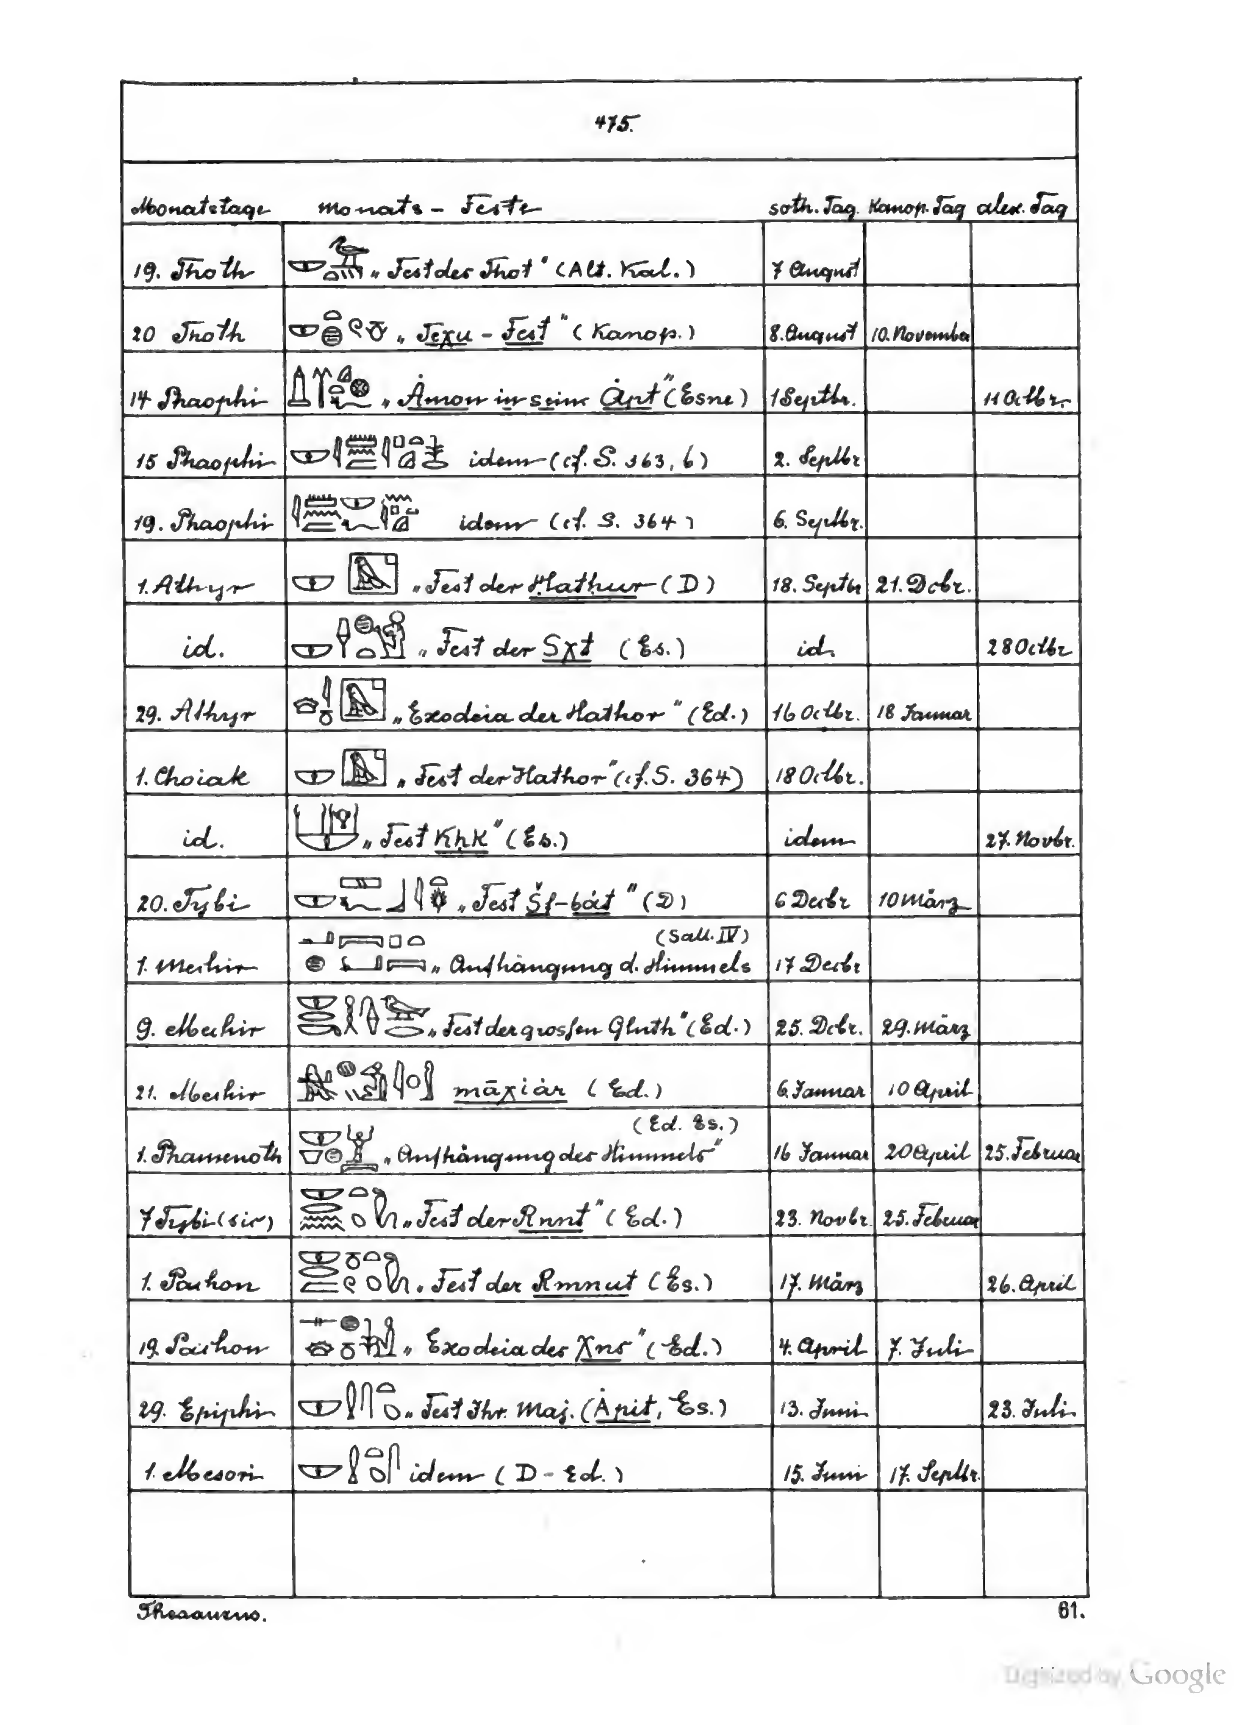 475.
Monatstage Monats - Feste soth. Tag. Kanop. Tag alex. Tag
19. Thoth „Fest der Thot“ (Alt. Kal.) 7 August
20 Thoth „Teχu - Fest“ (Kanop.) 8. August 10. November
14 Phaophi „Åmon in seine Åpt“ (Esne) 1 Septbr. 11 Octbr.
15 Phaophi idem (cf. S. 363, 6) 2. Septbr
19. Phaophi idem (cf. S. 364) 6. Septbr.
1. Athyr „Fest der Hathur (D) 18. Septbr 21. Dcbr.
id. „Fest der Sχt (Es.) id. 28 Octbr
29. Athyr „Exodeia der Hathor“ (Ed.) 16 Octbr. 18 Januar
1. Choiak „Fest der Hathor“ (cf. S. 364) 18 Octbr.
id. „Fest KhK“ (Es.) idem 27. Novbr.
20. Tybi „Fest Šf-båt“ (D) 6 Decbr 10 März
(Sall. IV)
1. Mechir „Aufhängung d. Himmels 17 Decbr
9. Mechir „Fest der grossen Gluth“ (Ed.) 25. Dcbr. 29. März
21. Mechir māχiår (Ed.) 6. Januar 10 April
(Ed. Es.)
1. Phamenoth „Aufhängung des Himmels“ 16 Januar 20 April 25. Februar
7 Tybi (sic) „Fest der Rnnt“ (Ed.) 23. Novbr. 25. Februar
1. Pachon „Fest der Rmnut (Es.) 17. März 26. April
19. Pachon „Exodeia des Χns“ (Ed.) 4. April 7. Juli
29. Epiphi „Fest Ihr. Maj. (Åpit, Es.) 13. Juni 23. Juli
1. Mesori idem (D - Ed.) 15. Juni 17. Septbr.
Thesaurus. 61.
Digitized by Google